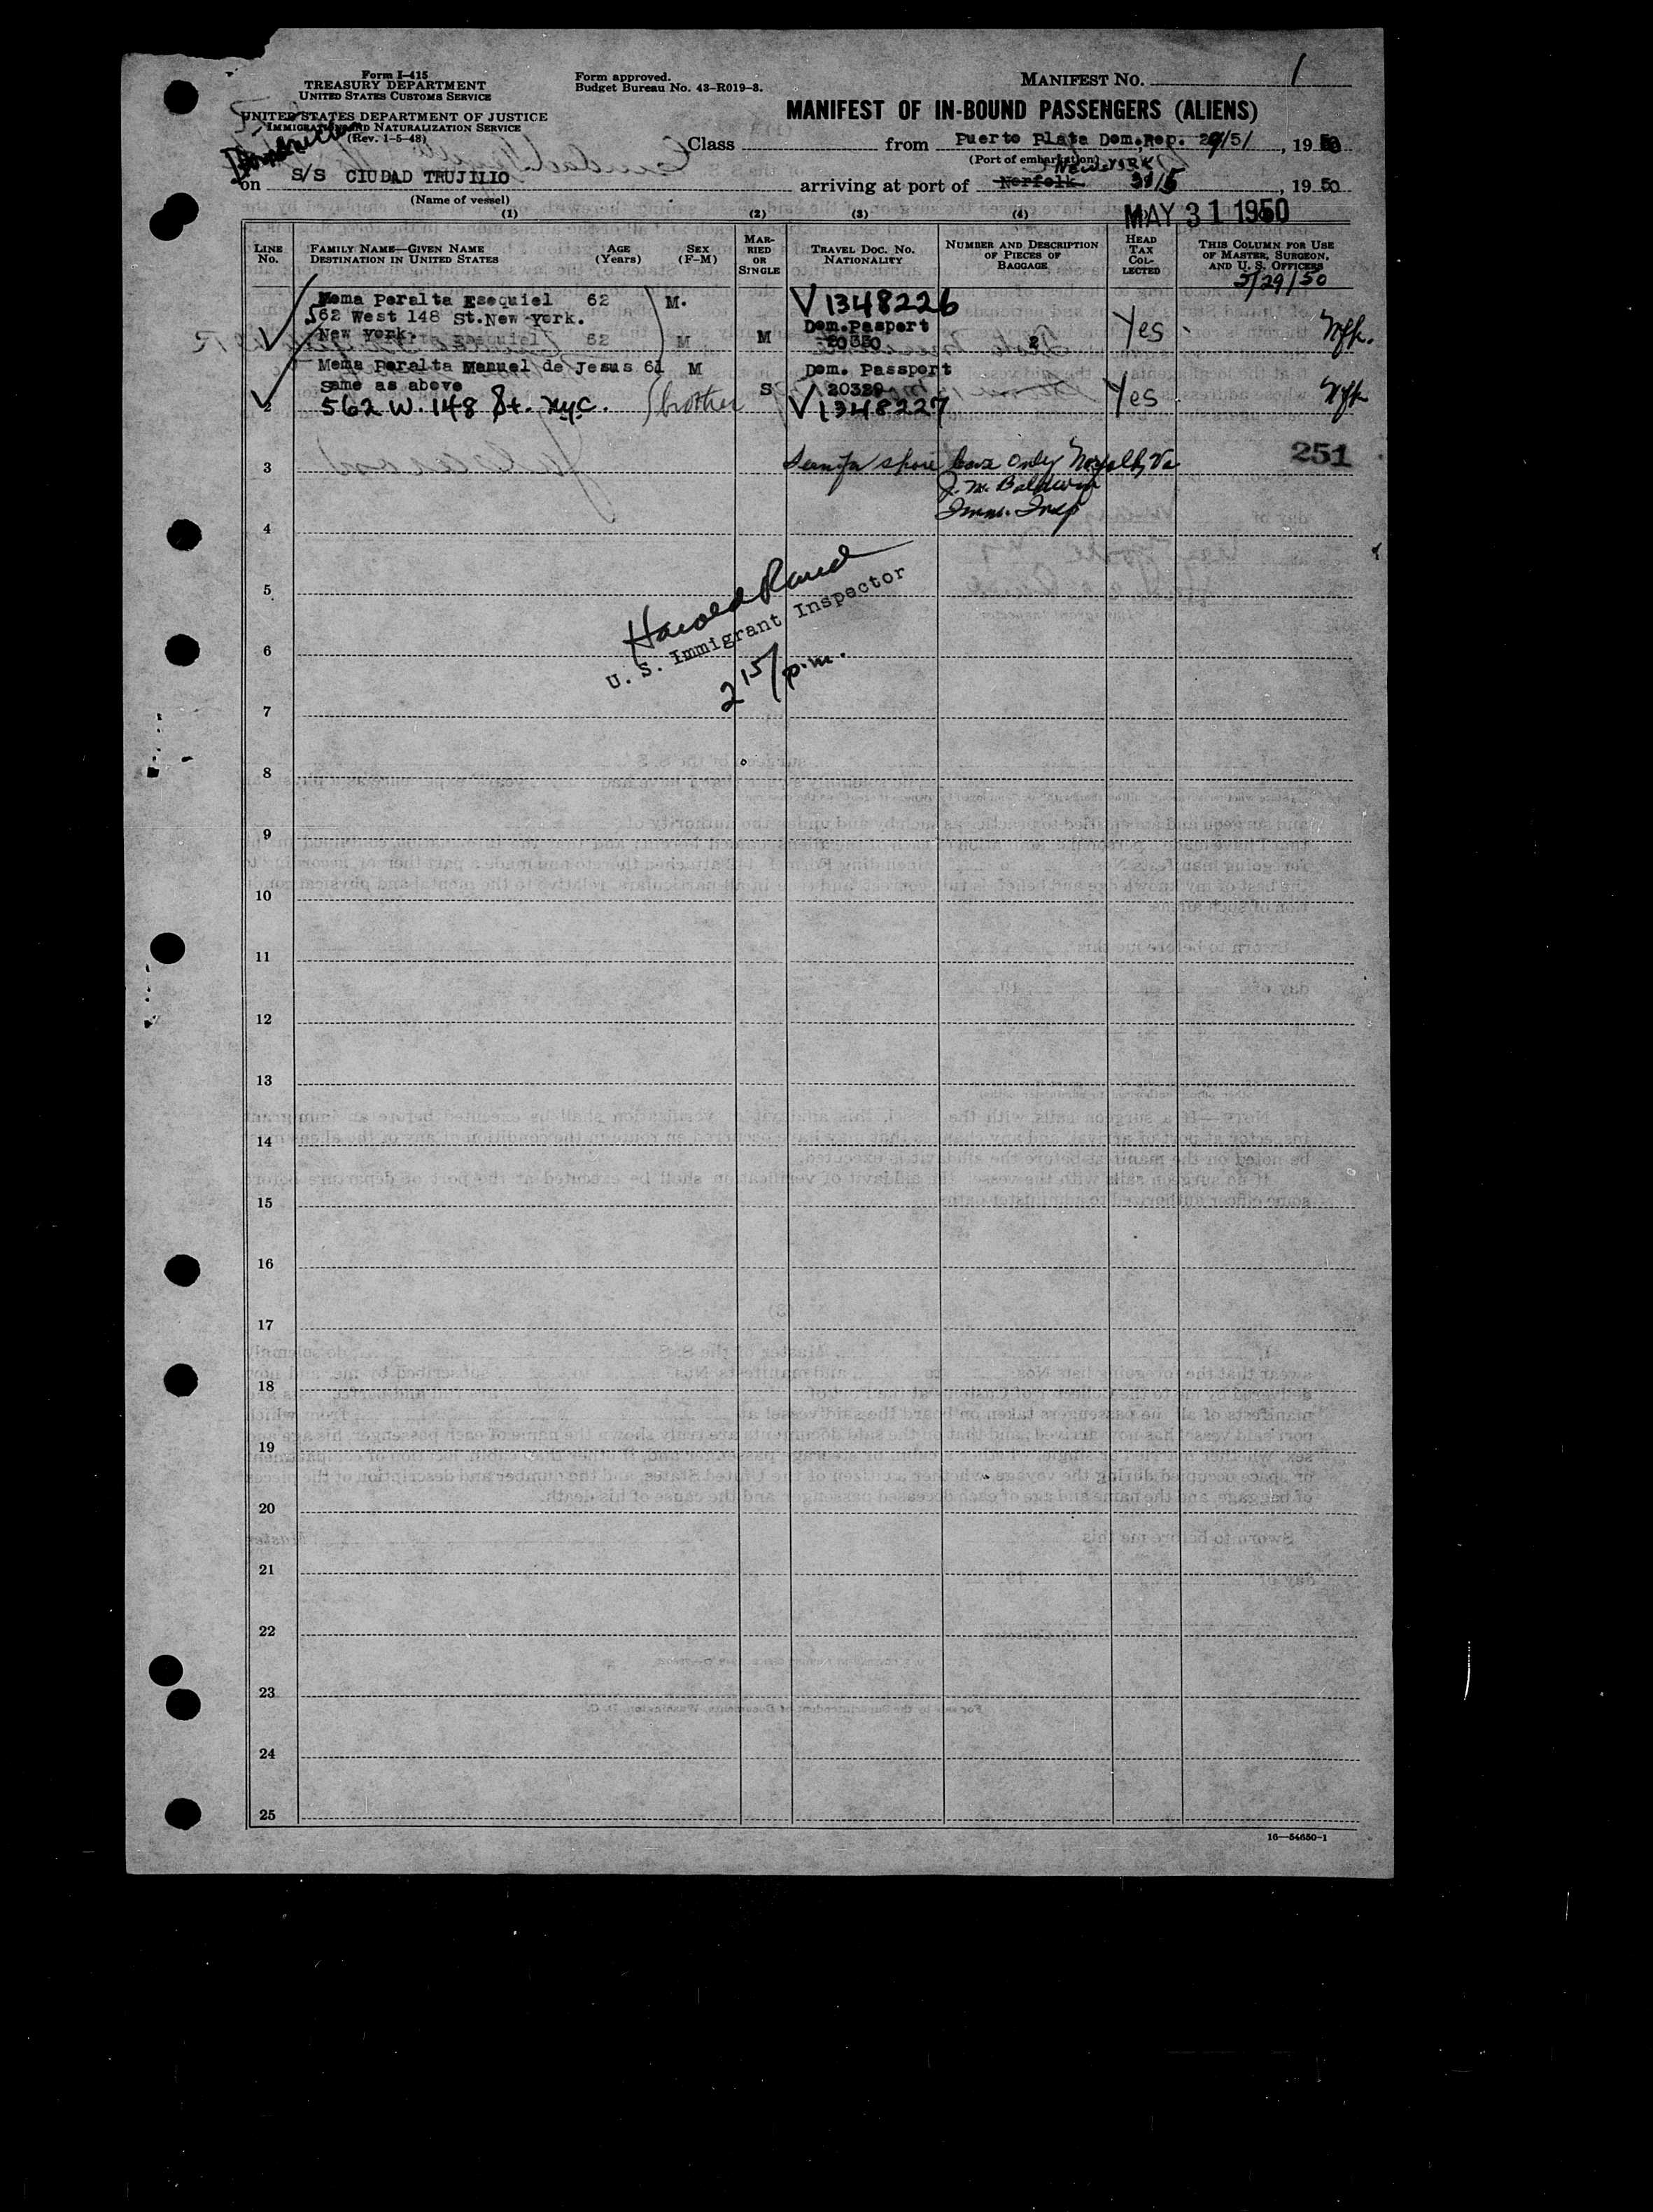 Form I-415
TREASURY DEPARTMENT
UNITED STATES CUSTOMS SERVICE
Form approved.
Budget Bureau No. 43-R019-3.
MANIFEST No. 1
UNITED STATES DEPARTMENT OF JUSTICE
IMMIGRATION AND NATURALIZATION SERVICE
(Rev. 1-5-48)
MANIFEST OF IN-BOUND PASSENGERS (ALIENS)
Class from Puerto Plata Dom.Rep. /5/, 1950
(Port of embarkation)
New York
on S/S CIUDAD TRUJILIO arriving at port of Norfolk /5, 1950
(Name of vessel)
MAY 31 1950
(1) (2) (3) (4)
LINE No.
FAMILY NAME—GIVEN NAME
DESTINATION IN UNITED STATES
AGE (Years)
SEX (F-M)
MARRIED OR SINGLE
TRAVEL DOC. NO.
NATIONALITY
NUMBER AND DESCRIPTION OF PIECES OF BAGGAGE
HEAD TAX COLLECTED
THIS COLUMN FOR USE OF MASTER, SURGEON, AND U. S. OFFICERS
5/29/50
Mema Peralta Esequiel 62 M. V1348226
562 West 148 St.New york.
New york. Dom.Pasport Yes Nfk.
Esequiel 62 M M 20330 2
Mema Peralta Manuel de Jesus 61 M Dom. Passport
same as above S 20329 Yes Nfk
2 562 W. 148 St. nyc. brother V1348227
251
3 shore leave only Norfolk, Va
J. M. Baldwin
Imm. Insp
4
5
Harold Rand
U. S. Immigrant Inspector
6
2 15/p.m.
7
8
9
10
11
12
13
14
15
16
17
18
19
20
21
22
23
24
25
16—54650-1